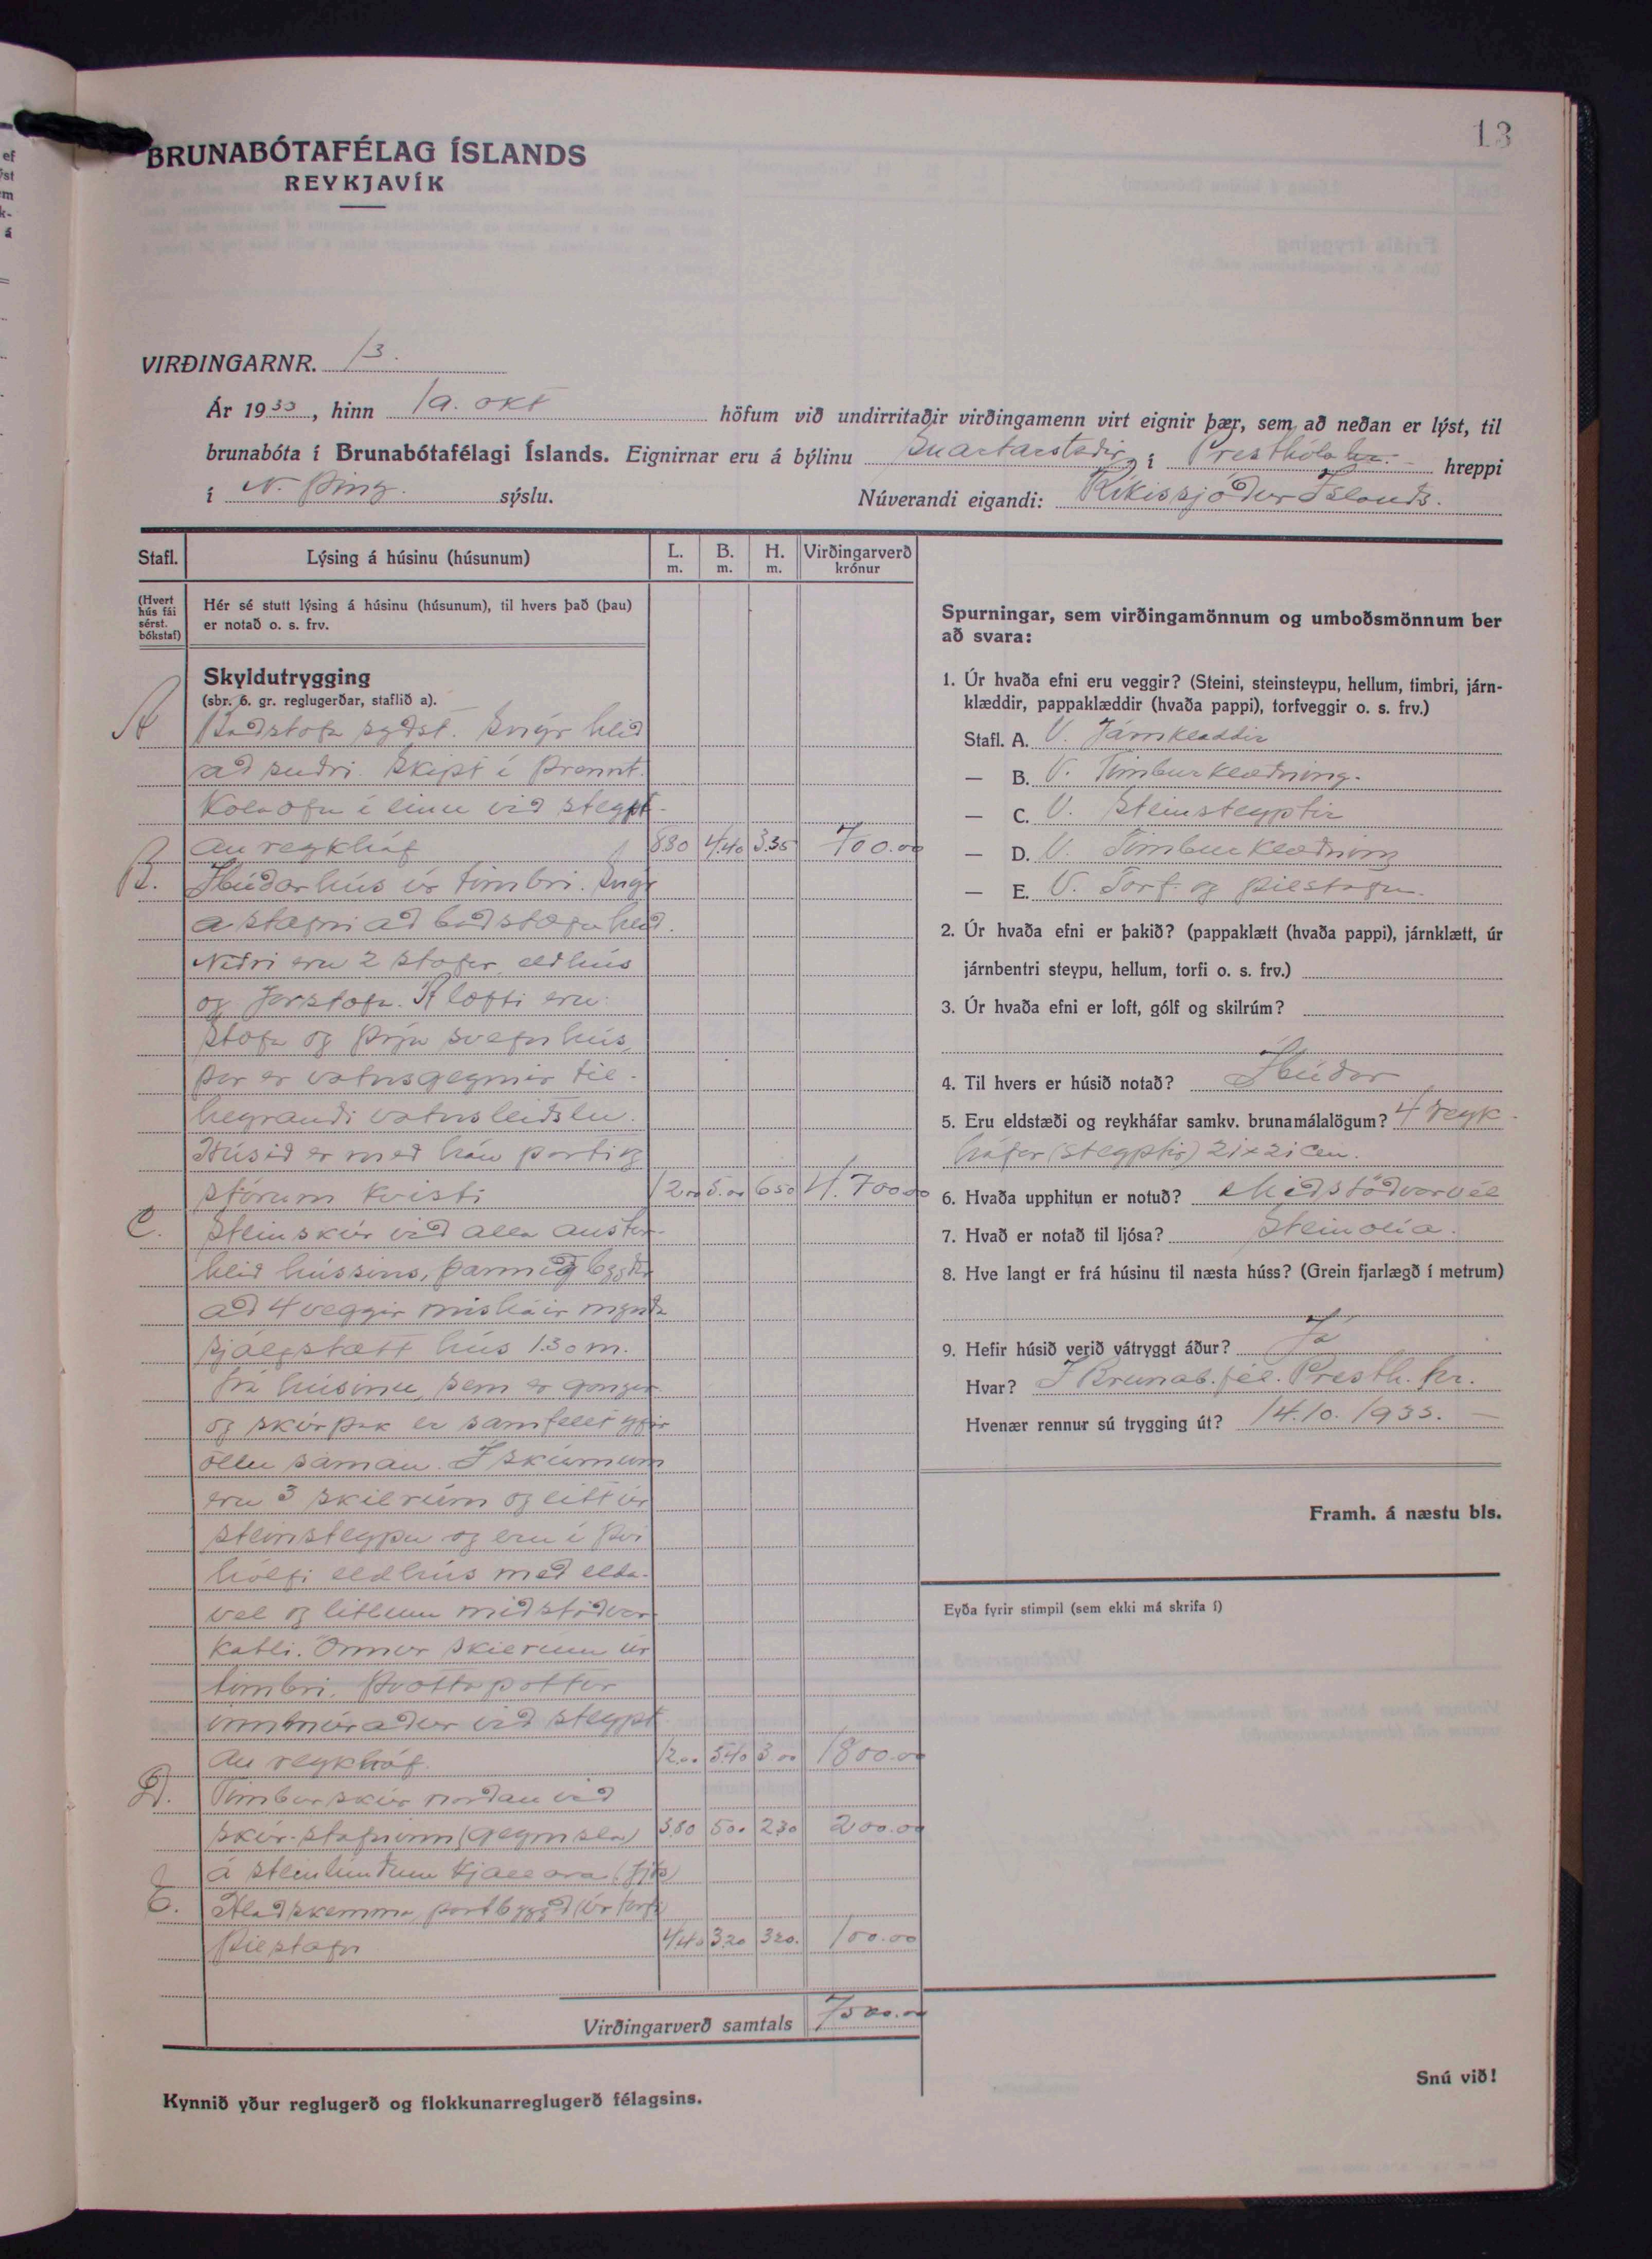 13
BRUNABÓTAFÉLAG ÍSLANDS
REYKJAVÍK
VIRÐINGARNR. 13.
Ár 1933, hinn 19. okt höfum við undirritaðir virðingamenn virt eignir þær, sem að neðan er lýst, til
brunabóta í Brunabótafélagi Íslands. Eignirnar eru á býlinu Snartarstaðir í Presthóla hr. hreppi
í N. Þing. sýslu. Núverandi eigandi: Ríkissjóður Íslands.
Stafl. Lýsing á húsinu (húsunum) L. m. B. m. H. m. Virðingarverð krónur
(Hvert hús fái sérst. bókstaf)
Hér sé stutt lýsing á húsinu (húsunum), til hvers það (þau)
er notað o. s. frv.
Skyldutrygging
(sbr. 6. gr. reglugerðar, staflið a).
A Baðstofa syðst. Snýr hlið
að suðri. Skipt í þrennt.
Kolaofn í einu við steypt-
an reykháf 8.80 4.40 3.35 700.00
B. Íbúðarhús úr timbri. Snýr
a stafni að baðstofu hlið.
Niðri eru 2 stofur, eldhús
og forstofa. Á lofti eru
stofa og þrjú svefnhús,
þar er vatnsgeymir til-
heyrandi vatnsleiðslu.
Húsið er með háu porti og
stórum kvisti 12.00 5.00 6.50 4.700.00
C. Steinskúr við alla austur-
hlið hússins, þannig byggður
að 4 veggir misháir mynda
sjálfstætt hús 1.30 m.
frá húsinu, sem er gangur
og skúrþak er samfellt yfir
öllu saman. Í skúrnum
eru 3 skilrúm og eitt úr
steinsteypu og eru í því
hólfi eldhús með elda-
vél og litlum miðstöðvar-
katli. Önnur skilrúm úr
timbri. Þvottapottur
innmúraður við steypt-
an reykháf. 12.00 5.40 3.00 1800.00
D. Timburskúr norðan við
skúr-stafninn (geymsla) 3.80 5.00 2.30 200.00
á steinlímdum kjallara (fjós)
E. Hlaðskemma, portbyggð (úr torfi)
þilstafn 4.40 3.20 3.20. 100.00
Virðingarverð samtals 7500.00
Kynnið yður reglugerð og flokkunarreglugerð félagsins.
Spurningar, sem virðingamönnum og umboðsmönnum ber
að svara:
1. Úr hvaða efni eru veggir? (Steini, steinsteypu, hellum, timbri, járn-
klæddir, pappaklæddir (hvaða pappi), torfveggir o. s. frv.)
Stafl. A. V. Járnklæddir
— B. V. Timburklæðning.
— C. V. Steinsteyptir
— D. V. Timburklæðning
— E. V. Torf- og þilstafn.
2. Úr hvaða efni er þakið? (pappaklætt (hvaða pappi), járnklætt, úr
járnbentri steypu, hellum, torfi o. s. frv.)
3. Úr hvaða efni er loft, gólf og skilrúm?
4. Til hvers er húsið notað? Íbúðar
5. Eru eldstæði og reykháfar samkv. brunamálalögum? 4 reyk-
háfar (steyptir) 21 x 21 cm.
6. Hvaða upphitun er notuð? Miðstöðvarvél
7. Hvað er notað til ljósa? Steinolía.
8. Hve langt er frá húsinu til næsta húss? (Grein fjarlægð í metrum)
9. Hefir húsið verið vátryggt áður? Já
Hvar? Í Brunab.fél. Presth. hr.
Hvenær rennur sú trygging út? 14.10. 1933. —
Framh. á næstu bls.
Eyða fyrir stimpil (sem ekki má skrifa í)
Snú við!